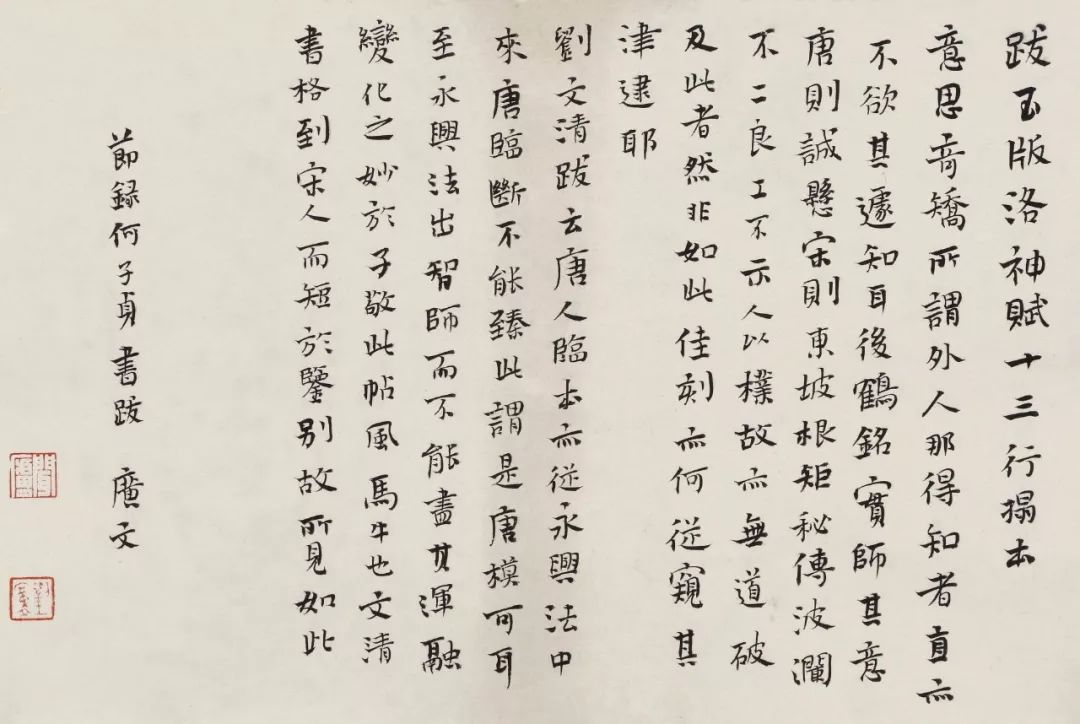 跋玉版洛神賦十三行搨本
意思奇矯所謂外人那得知者直亦
不欲其遽知耳後鶴銘實師其意
唐則誠懸宋則東坡根矩秘傳波瀾
不二良工不示人以樸故亦無道破
及此者然非如此佳刻亦何從窺其
津逮耶
劉文清跋云唐人臨本亦從永興法中
來唐臨斷不能臻此謂是唐模可耳
至永興法出智師而不能盡其渾融
變化之妙於子敬此帖風馬牛也文清
書格到宋人而短於鑒別故所見如此
節録何子貞書跋 廣文